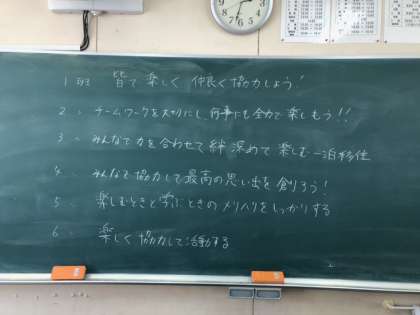 1班 皆で楽しく仲良く協力しよう!
2〃 チームワークを大切にし、何事にも全力で楽しもう!!
3〃 みんなで力を合わせて絆深めて楽しむ一泊移住
4〃 みんなで協力して最高の思い出を創ろう!
5〃 楽しむときと学ぶときのメリハリをしっかりする
6〃 楽しく協力して活動する